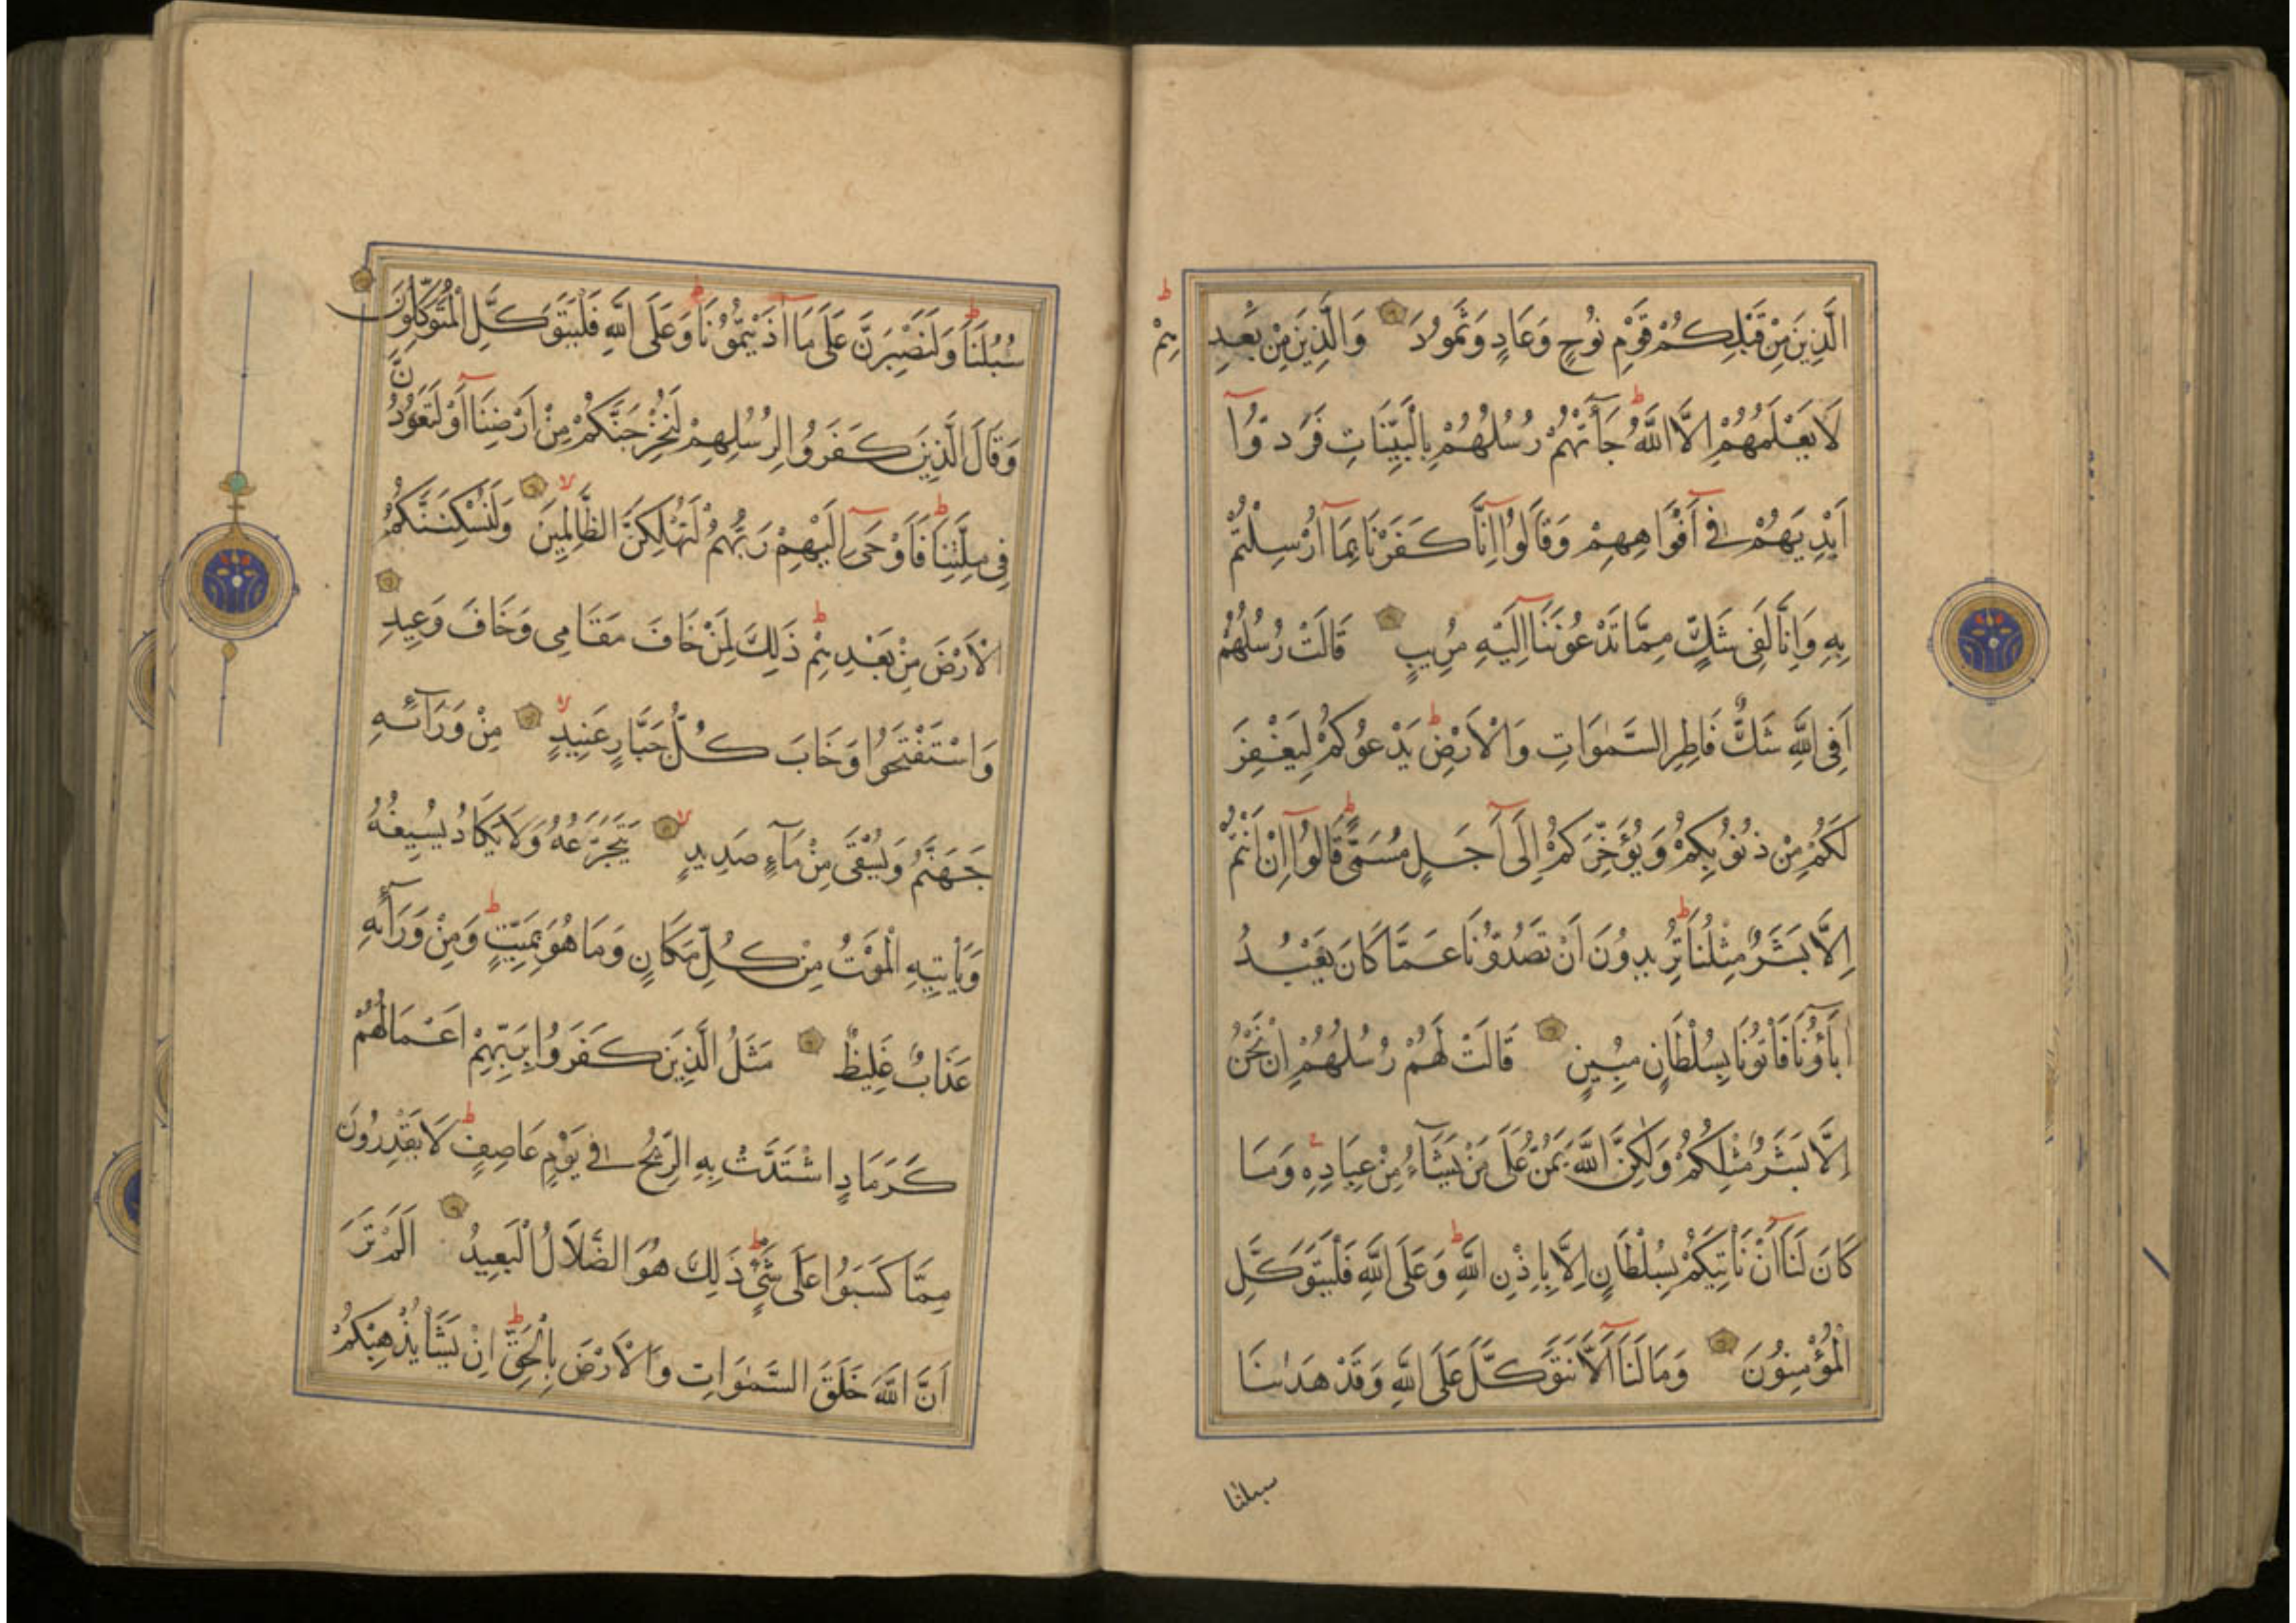 الَّذِينَ مِنْ قَبْلِكُمْ قَوْمِ نُوحٍ وَعَادٍ وَثَمُودَ وَالَّذِينَ مِنْ بَعْدِهِمْ
لَا يَعْلَمُهُمْ اِلَّا اللَّهُ جَآءَتْهُمْ رُسُلُهُمْ بِالْبَيِّنَاتِ فَرَدُّوٓا
اَيْدِيَهُمْ فِٓى اَفْوَاهِهِمْ وَقَالُوٓا اِنَّا كَفَرْنَا بِمَآ اُرْسِلْتُمْ
بِهِ وَاِنَّا لَفِى شَكٍّ مِمَّا تَدْعُونَنَآ اِلَيْهِ مُرِيبٍ قَالَتْ رُسُلُهُمْ
اَفِى اللَّهِ شَكٌّ فَاطِرِ السَّمٰوَاتِ وَالْاَرْضِ يَدْعُوكُمْ لِيَغْفِرَ
لَكُمْ مِنْ ذُنُوبِكُمْ وَيُؤَخِّرَكُمْ اِلَىٓ اَجَلٍ مُسَمًّى قَالُوٓا اِنْ اَنْتُمْ
اِلَّا بَشَرٌ مِثْلُنَا تُرِيدُونَ اَنْ تَصُدُّونَا عَمَّا كَانَ يَعْبُدُ
اٰبَآؤُنَا فَاْتُونَا بِسُلْطَانٍ مُبِينٍ قَالَتْ لَهُمْ رُسُلُهُمْ اِنْ نَحْنُ
اِلَّا بَشَرٌ مِثْلُكُمْ وَلٰكِنَّ اللَّهَ يَمُنُّ عَلَى مَنْ يَشَآءُ مِنْ عِبَادِهِ وَمَا
كَانَ لَنَآ اَنْ نَاْتِيَكُمْ بِسُلْطَانٍ اِلَّا بِاِذْنِ اللَّهِ وَعَلَى اللَّهِ فَلْيَتَوَكَّلِ
الْمُؤْمِنُونَ وَمَا لَنَآ اَلَّا نَتَوَكَّلَ عَلَى اللَّهِ وَقَدْ هَدٰىنَا
سبلنا
سُبُلَنَا وَلَنَصْبِرَنَّ عَلَى مَآ اٰذَيْتُمُونَا وَعَلَى اللَّهِ فَلْيَتَوَكَّلِ الْمُتَوَكِّلُونَ
وَقَالَ الَّذِينَ كَفَرُوا لِرُسُلِهِمْ لَنُخْرِجَنَّكُمْ مِنْ اَرْضِنَآ اَوْ لَتَعُودُنَّ
فِى مِلَّتِنَا فَاَوْحَىٓ اِلَيْهِمْ رَبُّهُمْ لَنُهْلِكَنَّ الظَّالِمِينَ وَلَنُسْكِنَنَّكُمُ
الْاَرْضَ مِنْ بَعْدِهِمْ ذَلِكَ لِمَنْ خَافَ مَقَامِى وَخَافَ وَعِيدِ
وَاسْتَفْتَحُوا وَخَابَ كُلُّ جَبَّارٍ عَنِيدٍ مِنْ وَرَآئِهِ
جَهَنَّمُ وَيُسْقَى مِنْ مَآءٍ صَدِيدٍ يَتَجَرَّعُهُ وَلَا يَكَادُ يُسِيغُهُ
وَيَاْتِيهِ الْمَوْتُ مِنْ كُلِّ مَكَانٍ وَمَا هُوَ بِمَيِّتٍ وَمِنْ وَرَآئِهِ
عَذَابٌ غَلِيظٌ مَثَلُ الَّذِينَ كَفَرُوا بِرَبِّهِمْ اَعْمَالُهُمْ
كَرَمَادٍ اشْتَدَّتْ بِهِ الرِّيحُ فِى يَوْمٍ عَاصِفٍ لَا يَقْدِرُونَ
مِمَّا كَسَبُوا عَلَى شَىْءٍ ذَلِكَ هُوَ الضَّلَالُ الْبَعِيدُ اَلَمْ تَرَ
اَنَّ اللَّهَ خَلَقَ السَّمٰوَاتِ وَالْاَرْضَ بِالْحَقِّ اِنْ يَشَاْ يُذْهِبْكُمْ